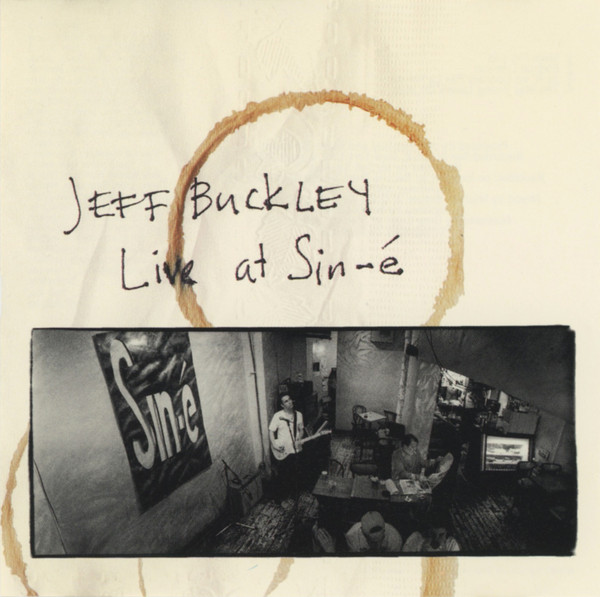 JEFF BUCKLEY
Live at Sin-é
Sin-é